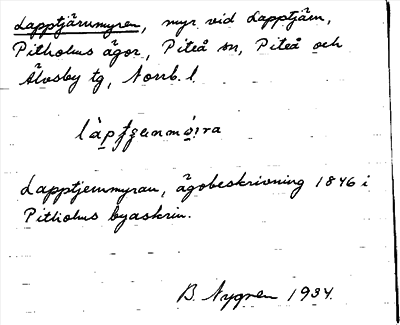 Lapptjärnmyren, myr vid Lapptjärn,
Pitholms ägor, Piteå sn, Piteå och
Älvsby tg, Norrb. l.
Lapptjernmyran, ägobeskrivning 1846 i
Pitholms byaskrin.
B. Nygren 1934.